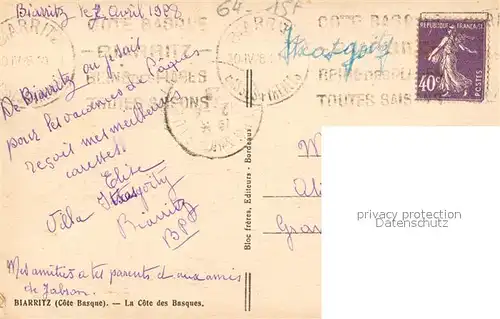 Biarritz le 7 Avril 1928
64-155
BIARRITZ
CÔTE BASQUE
BIARRITZ
TOUTES SAISONS
CÔTE BASQUE
TOUTES SAIS
REPUBLIQUE FRANÇAISE
40c
POSTES
De Biarritz ou je suis
pour les vacances de Pâques
reçois mes meilleures
caresses
Elise
Villa
Biarritz
BPy
Mes amitiés a tes parents et aux amis
de
BIARRITZ (Côte Basque). — La Côte des Basques.
Bloc frères, Editeurs - Bordeaux
W
Al
Gra
privacy protection
Datenschutz